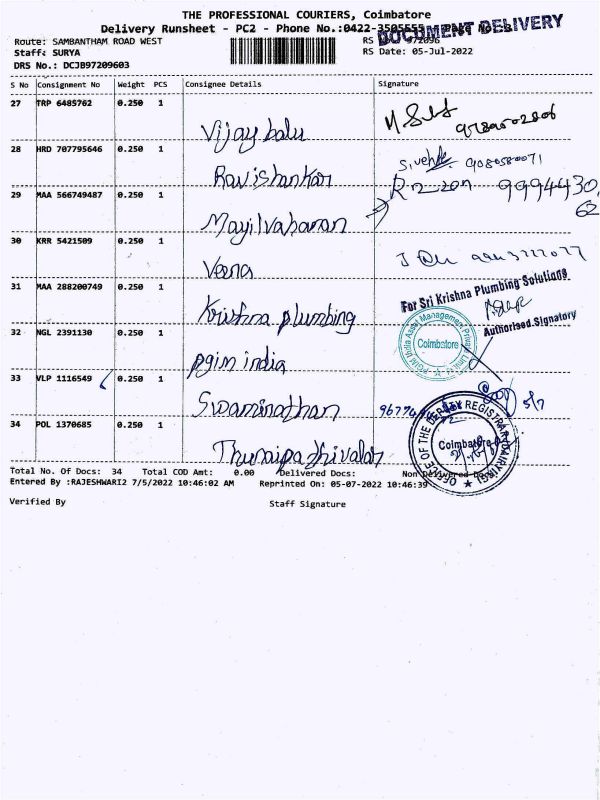 THE PROFESSIONAL COURIERS, Coimbatore
Delivery Runsheet - PC2 - Phone No.:0422-3505553
DOCUMENT DELIVERY
Route: SAMBANTHAM ROAD WEST
Staff: SURYA RS Date: 05-Jul-2022
DRS No.: DCJB97209603
S No Consignment No Weight PCS Consignee Details Signature
27 TRP 6485762 0.250 1
Vijay balu
28 HRD 707795646 0.250 1
9080580071
Ravishankar
29 MAA 566749487 0.250 1
9994430
62
Mayilvahanan
30 KRR 5421509 0.250 1
Veena
31 MAA 288200749 0.250 1
For Sri Krishna Plumbing Solutions
Krishna plumbing
Authorised Signatory
32 NGL 2391130 0.250 1
PGIM India Asset Management Private Limited
Coimbatore
pgim india
33 VLP 1116549 0.250 1
5/7
Swaminathan
34 POL 1370685 0.250 1
OFFICE OF THE DEPUTY REGISTRAR
Coimbatore
Thunaipathivalar
Total No. Of Docs: 34 Total COD Amt: 0.00 Delivered Docs: Non Delivered Docs:
Entered By :RAJESHWARI2 7/5/2022 10:46:02 AM Reprinted On: 05-07-2022 10:46:39
Verified By Staff Signature